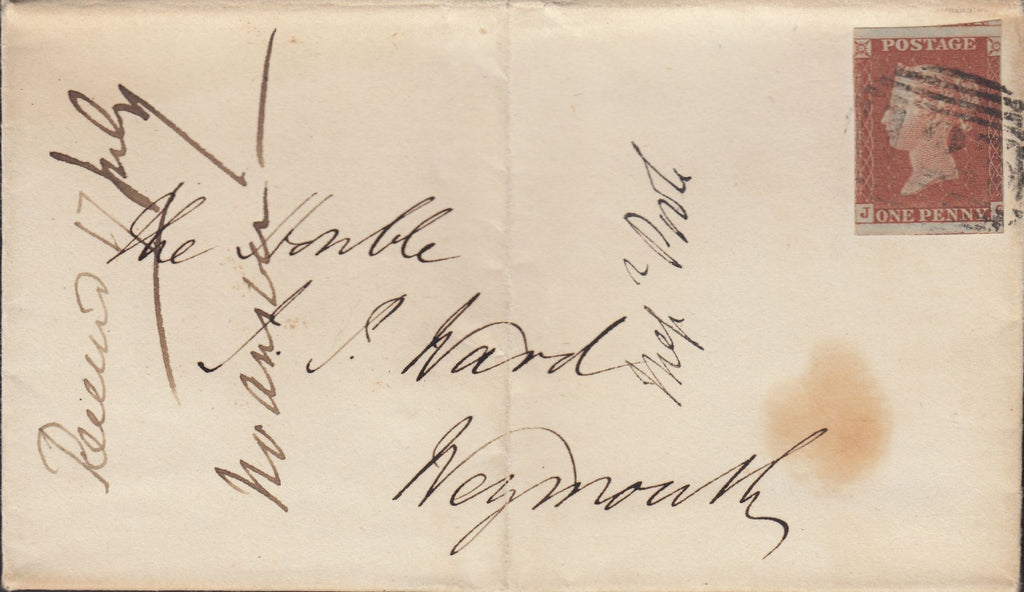 The Honble
S. P. Ward
Weymouth
Received 17 July
No answer
POSTAGE
ONE PENNY
J